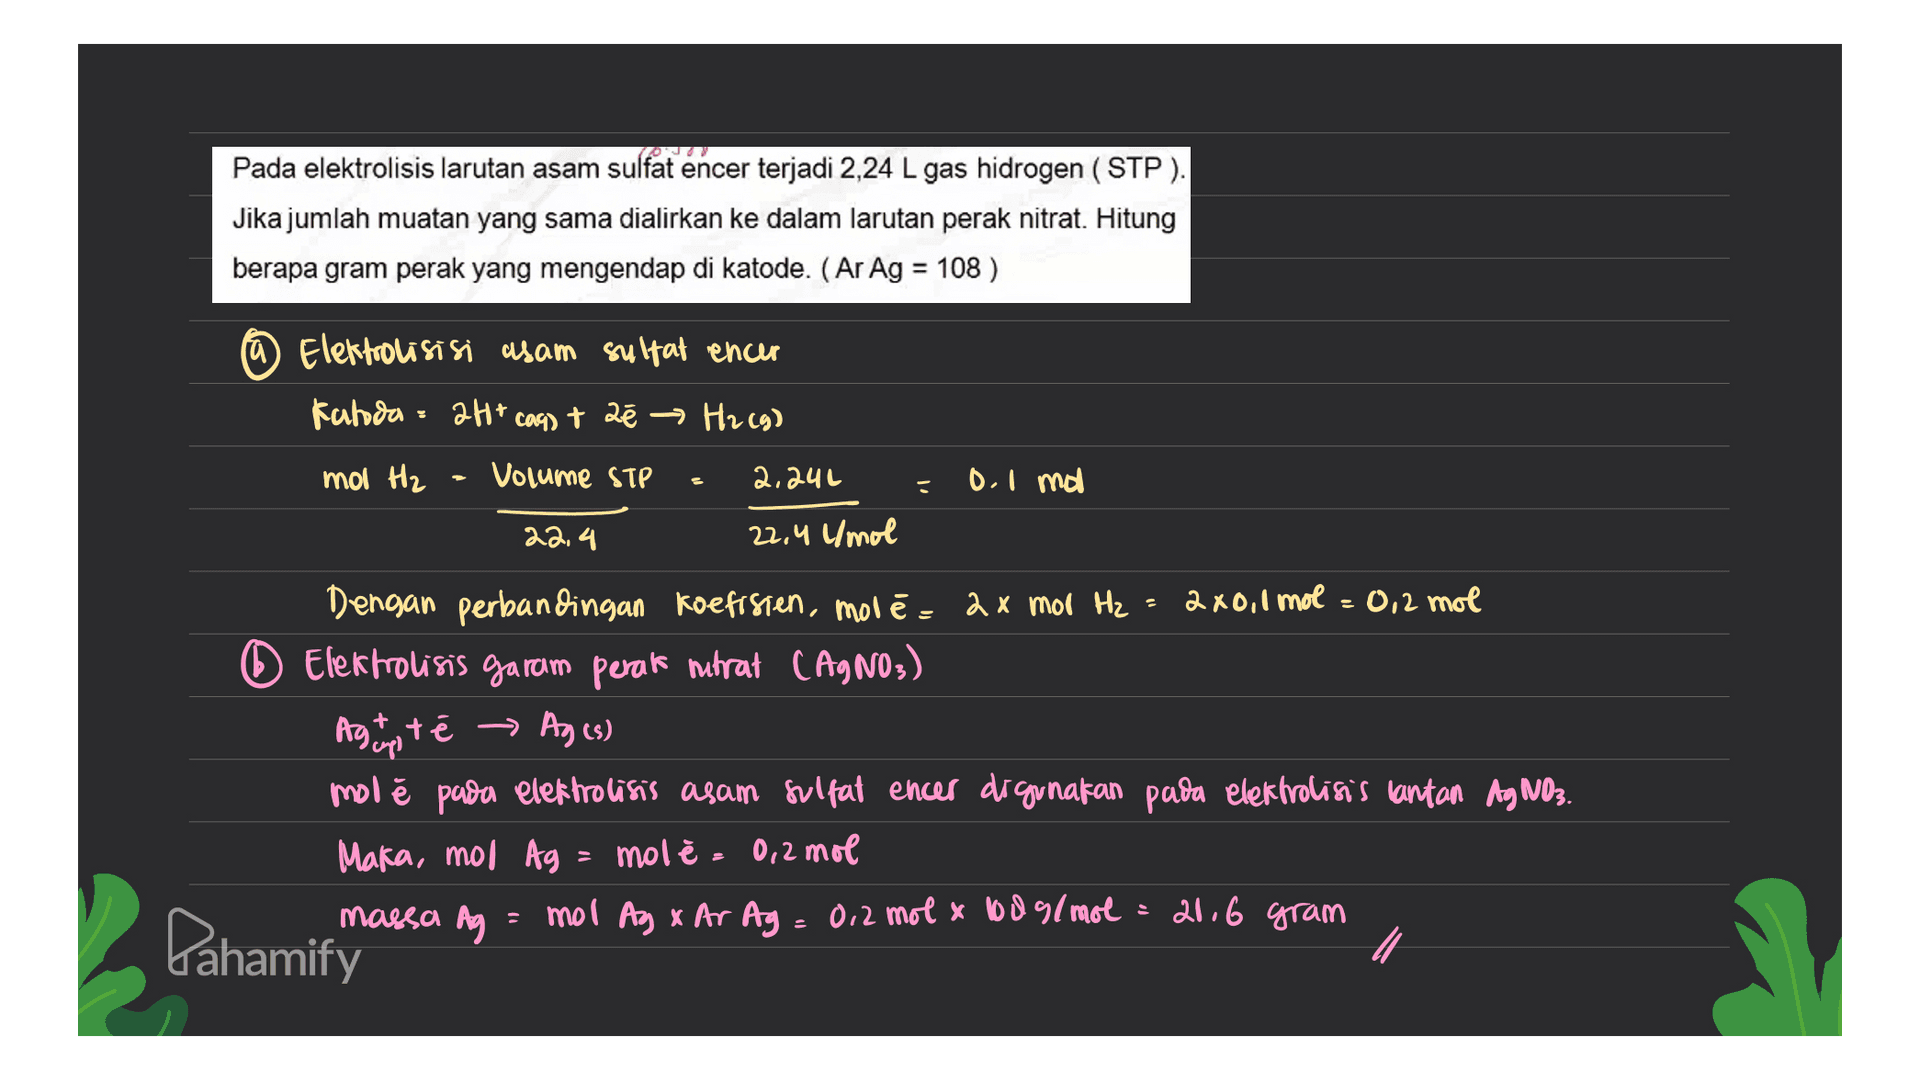 Pada elektrolisis larutan asam sulfat encer terjadi 2,24 L gas hidrogen ( STP ).
Jika jumlah muatan yang sama dialirkan ke dalam larutan perak nitrat. Hitung
berapa gram perak yang mengendap di katode. ( Ar Ag = 108 )
ⓐ Elektrolisisi asam sulfat encer
Katoda = 2H+ (aq) + 2ē → H2 (g)
mol H2 = Volume STP / 22,4 = 2,24 L / 22,4 L/mol = 0.1 mol
Dengan perbandingan koefisien, mol ē = 2 x mol H2 = 2 x 0,1 mol = 0,2 mol
ⓑ Elektrolisis garam perak nitrat (AgNO3)
Ag+ (aq) + ē → Ag (s)
mol ē pada elektrolisis asam sulfat encer digunakan pada elektrolisis larutan AgNO3.
Maka, mol Ag = mol ē = 0,2 mol
massa Ag = mol Ag x Ar Ag = 0,2 mol x 108 g/mol = 21,6 gram
Pahamify